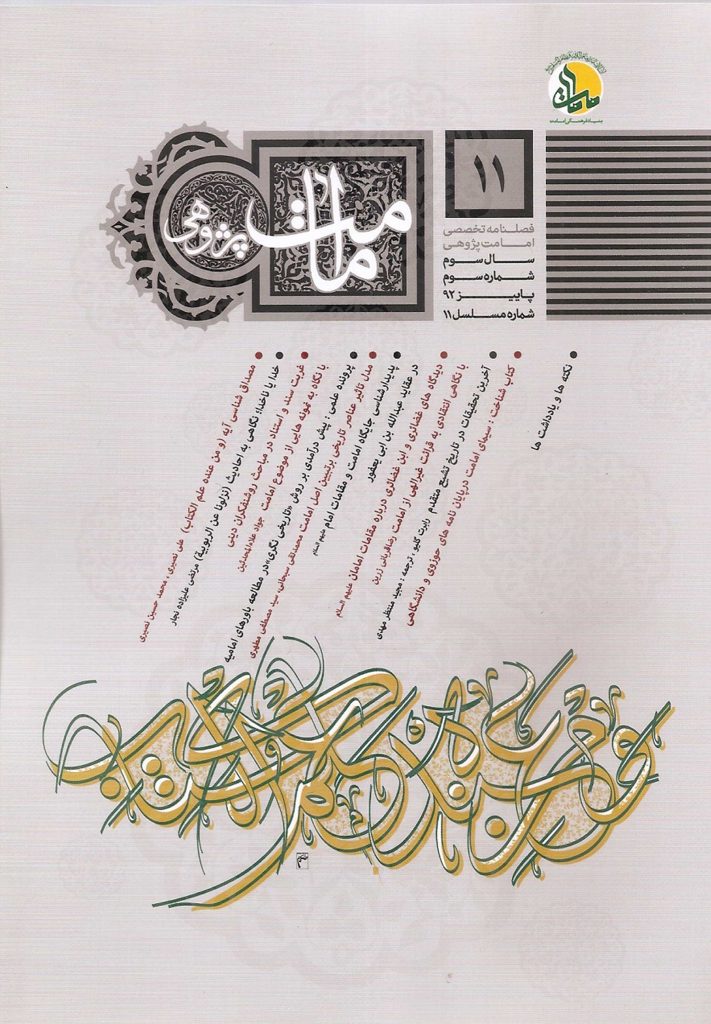 بنیاد فرهنگی امامت
۱۱
امامت پژوهی
فصلنامه تخصصی
امامت پژوهی
سال سوم
شماره سوم
پاییز ۹۲
شماره مسلسل ۱۱
مصداق شناسی آیه (و من عنده علم الکتاب) علی نصیری ، محمد حسین نصیری
خدا یا ناخدا؛ نگاهی به احادیث (نزلونا عن الربوبیة) مرتضی علیزاده نجار
غربت سند و استناد در مباحث روشنفکران دینی
با نگاه به نمونه هایی از موضوع امامت جواد علاءالمحدثین
پرونده علمی : پیش درآمدی بر روش «تاریخی نگری» در مطالعه باورهای امامیه
مدل تاثیر عناصر تاریخی بر تبیین اصل امامت محمدتقی سبحانی، سید مصطفی مطهری
پدیدارشناسی جایگاه امامت و مقامات امام علیهم السلام
در عقاید عبدالله بن ابی یعفور
دیدگاه های غضائری و ابن غضائری درباره مقامات امامان علیهم السلام
با نگاهی انتقادی به قرائت غیرالهی از امامت رضا قربانی زرین
آخرین تحقیقات در تاریخ تشیع متقدم رابرت گلیو ، ترجمه : مجید منتظر مهدی
کتاب شناخت : سیمای امامت در پایان نامه های حوزوی و دانشگاهی
نکته ها و یادداشت ها
ومن عنده علم الکتاب